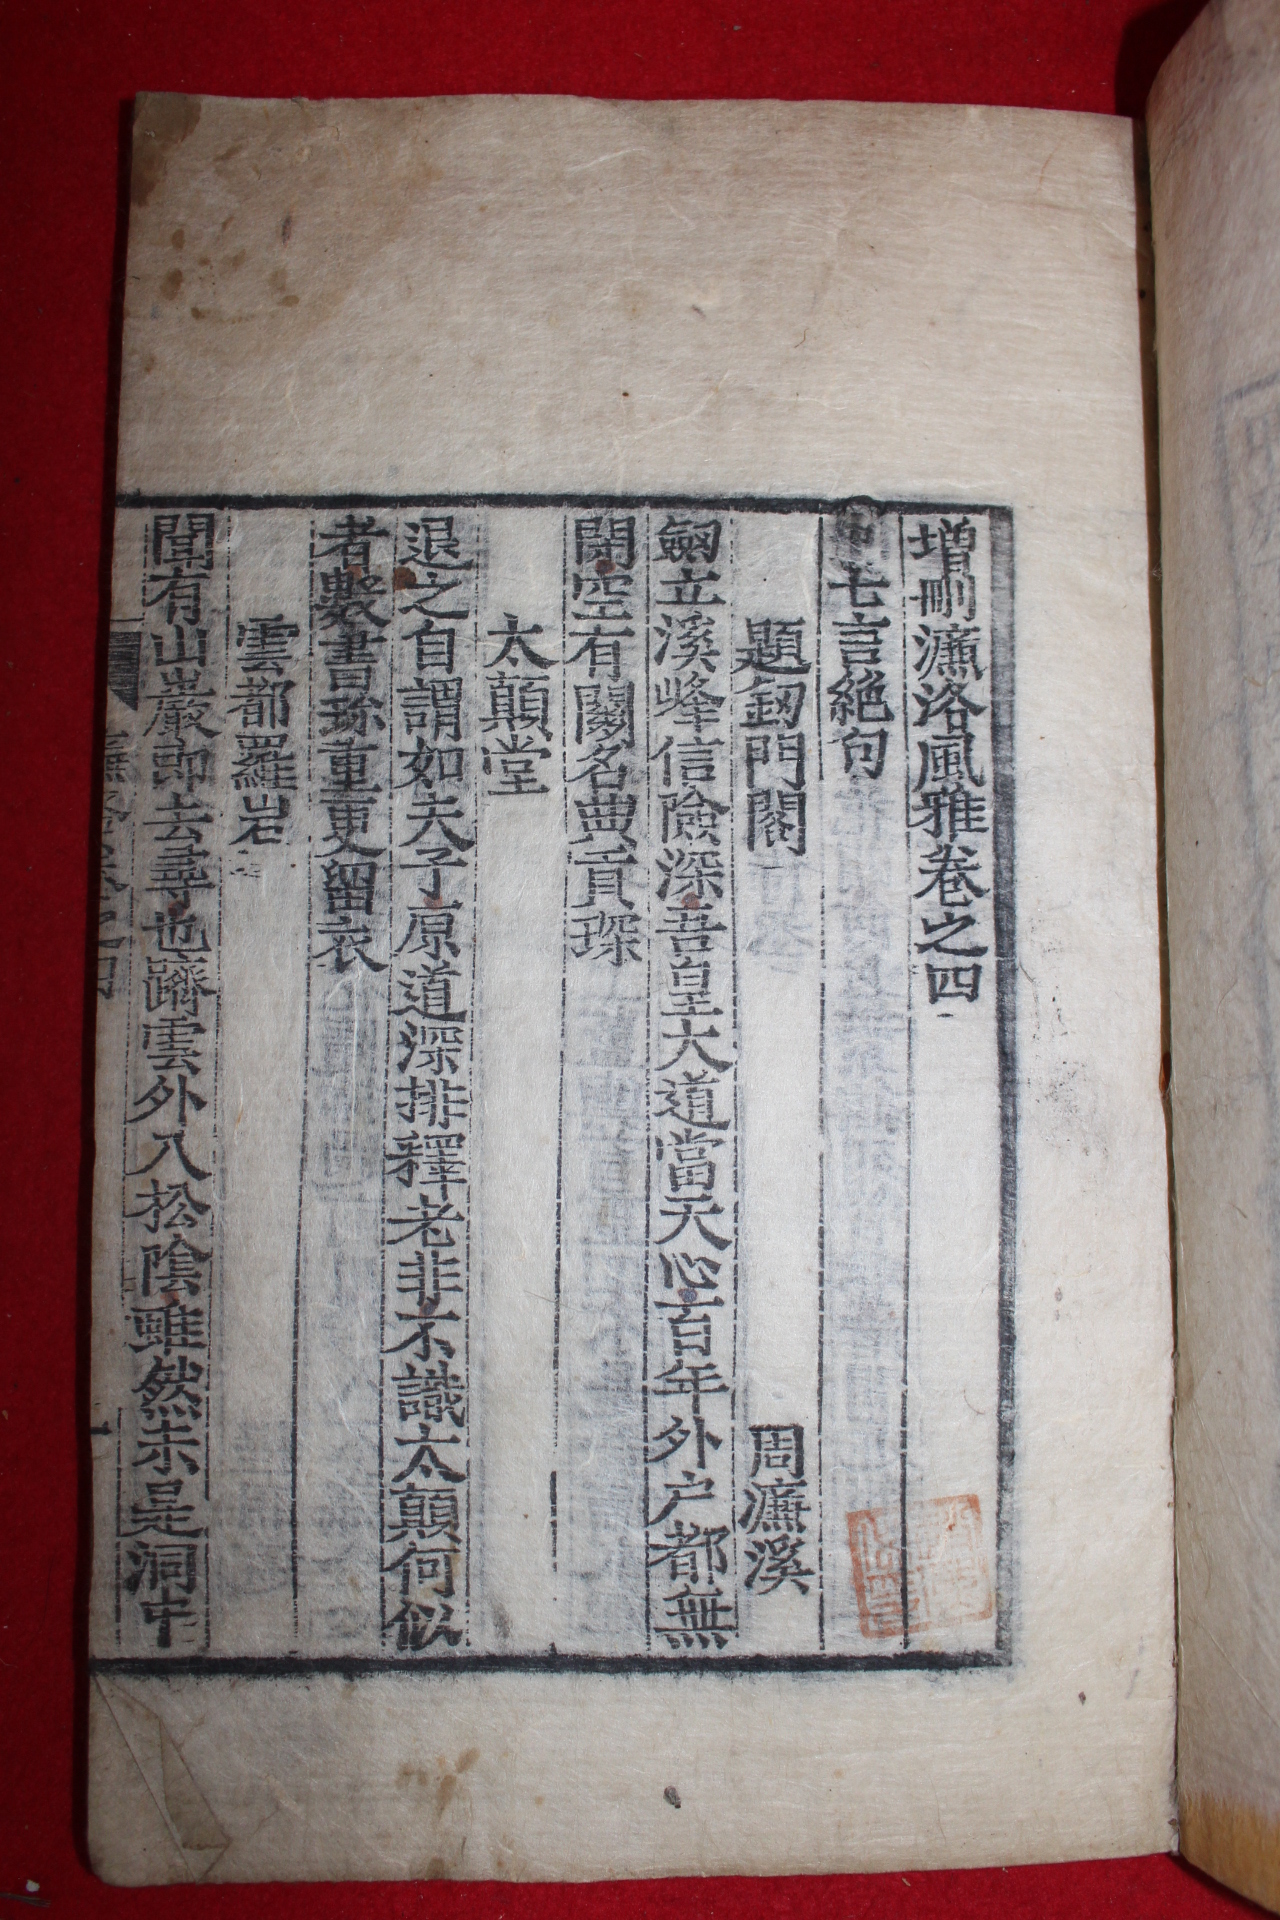 增刪濂洛風雅卷之四
七言絶句
題釰門閣 周濂溪
劒立溪峰信險深吾皇大道當天心百年外户都無
閉空有關名點貢琛
太顛堂
退之自謂如夫子原道深排釋老非不識太顛何似
者數書珎重更留衣
雲都羅岩
聞有山巖即去尋也躋雲外入松陰雖然未是洞中